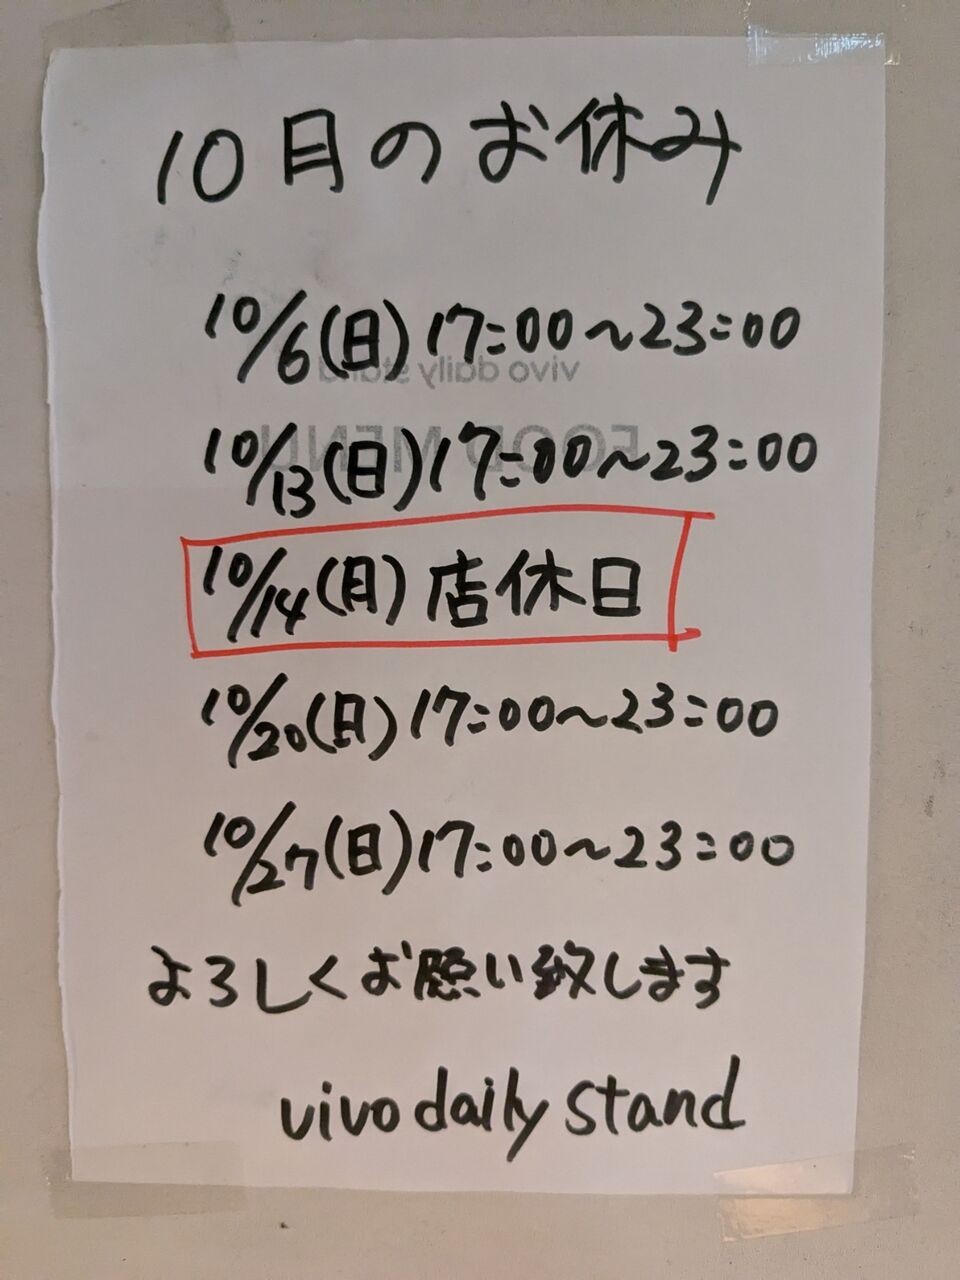 10月のお休み
10/6(日)17:00～23:00
vivo daily stand
10/13(日)17:00～23:00
FOOD MENU
10/14(月)店休日
10/20(日)17:00～23:00
10/27(日)17:00～23:00
よろしくお願い致します
vivo daily stand